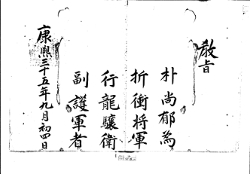 敎旨
朴尚郁為
折衝將軍
行龍驤衛
副護軍者
康熙三十五年九月初四日